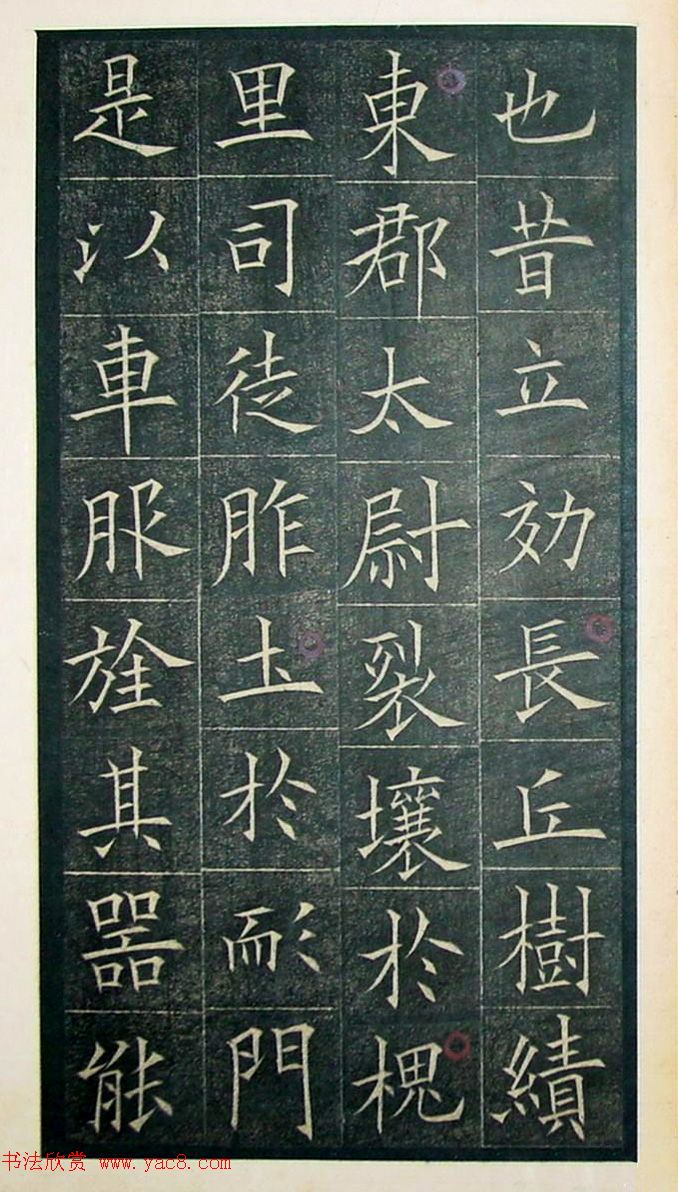 也昔立効長丘樹績
東郡太尉裂壤於槐
里司徒胙土於耏門
是以車服旌其器能
书法欣赏 www.yac8.com